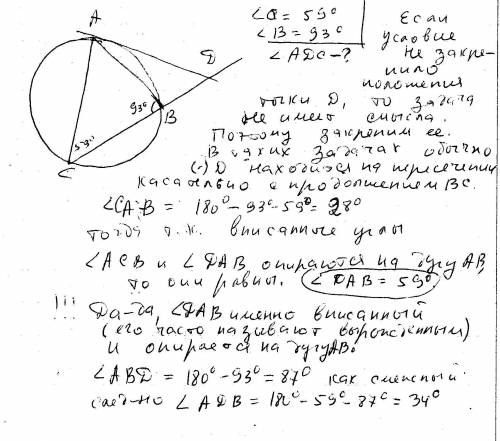 A
∠C = 59°
∠B = 93°
∠ADC – ?
Если
условие
не закре-
пило
положения
D
93°
B
59°
C
точки D, то задача
не имеет смысла.
Поэтому закрепим её.
В таких задачах обычно
(·) D находится на пересечении
касательно с продолжением BC.
∠CAB = 180° – 93° – 59° = 28°
тогда т.к. вписанные углы
∠ACB и ∠DAB опираются на дугу AB,
то они равны. ∠DAB = 59°
!!! Да-да, ∠DAB именно вписанный
(его часто называют вырожденным)
и опирается на дугу AB.
∠ABD = 180° – 93° = 87° как смежный
∠ADB = 180° – 59° – 87° = 34°